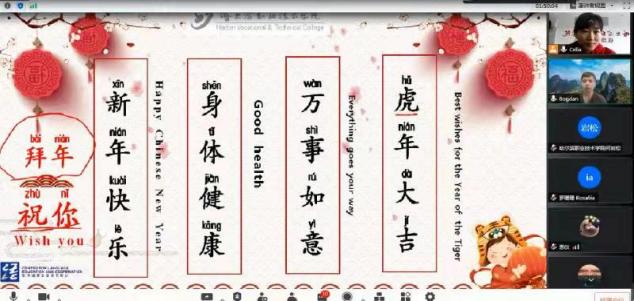 01:50:04
演讲者视图
Harbin Vocational & Technical College
bài nián
拜年
zhù nǐ
祝你
Wish you
xīn
新
nián
年
kuài
快
lè
乐
Happy Chinese New Year
shēn
身
tǐ
体
jiàn
健
kāng
康
Good health
wàn
万
shì
事
rú
如
yì
意
Everything goes your way
hǔ
虎
nián
年
dà
大
jí
吉
Best wishes for the Year of the Tiger
Celia
Bogdan
岩松
ia